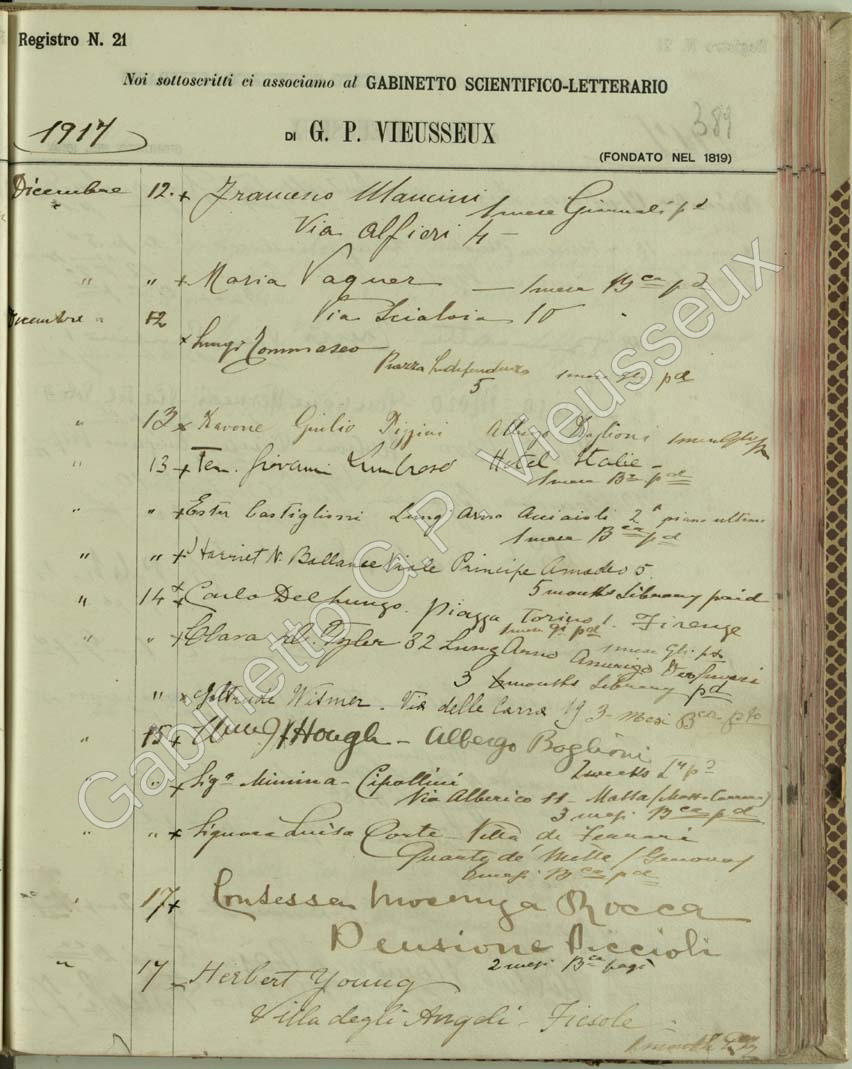 Registro N. 21
Noi sottoscritti ci associamo al GABINETTO SCIENTIFICO-LETTERARIO
389
1917
DI G. P. VIEUSSEUX
(FONDATO NEL 1819)
Dicembre 12. x Francesco Mancini 1 mese Giornali pd
Via Alfieri 4 -
" " x Maria Vagner — 1 mese Bca pd
Dicembre 12 Via Scialoia 10
x Luigi Tommaseo
Piazza Indipendenza
5 1 mese Gli pd
" 13 x Giulio Pizzini Albergo Baglioni 1 mese Gli p
" 13 x Ten. Giovanni Lumbroso Hotel Italie -
1 mese Bca pd
" " x Ester Castiglioni Lung'Arno Acciaioli 2 piano ultimo
1 mese Bca pd
" " x Harriet N. Ballance Viale Principe Amadeo 5.
5 months Library paid
" 14 x Carlo Del Lungo. Piazza Torino 1. Firenze
1 mese Gi pd
" " x Clara Tyler 32 Lung Arno Amerigo Vespucci
1 mese Gli. pd
3 months Library pd
" " x Geltrude Witmer. Via delle Carra 19 3 - Mesi Bca pto
15 x Hough - Albergo Baglioni
2 weeks pd
" " x Sigra Minina - Cipollini
Via Alberico 11 - Massa (Massa-Carrara)
3 mesi Bca pd
" " x Signora Luisa Corte - Villa de Ferrari
Quarto de' Mille (Genova)
2 mesi Bca pd
" 17 x Contessa Mocenigo Rocca
Pensione Piccioli
2 mesi Bca pag
" 17 Herbert Young
Villa degli Angeli - Fiesole
1 month
Gabinetto G.P. Vieusseux